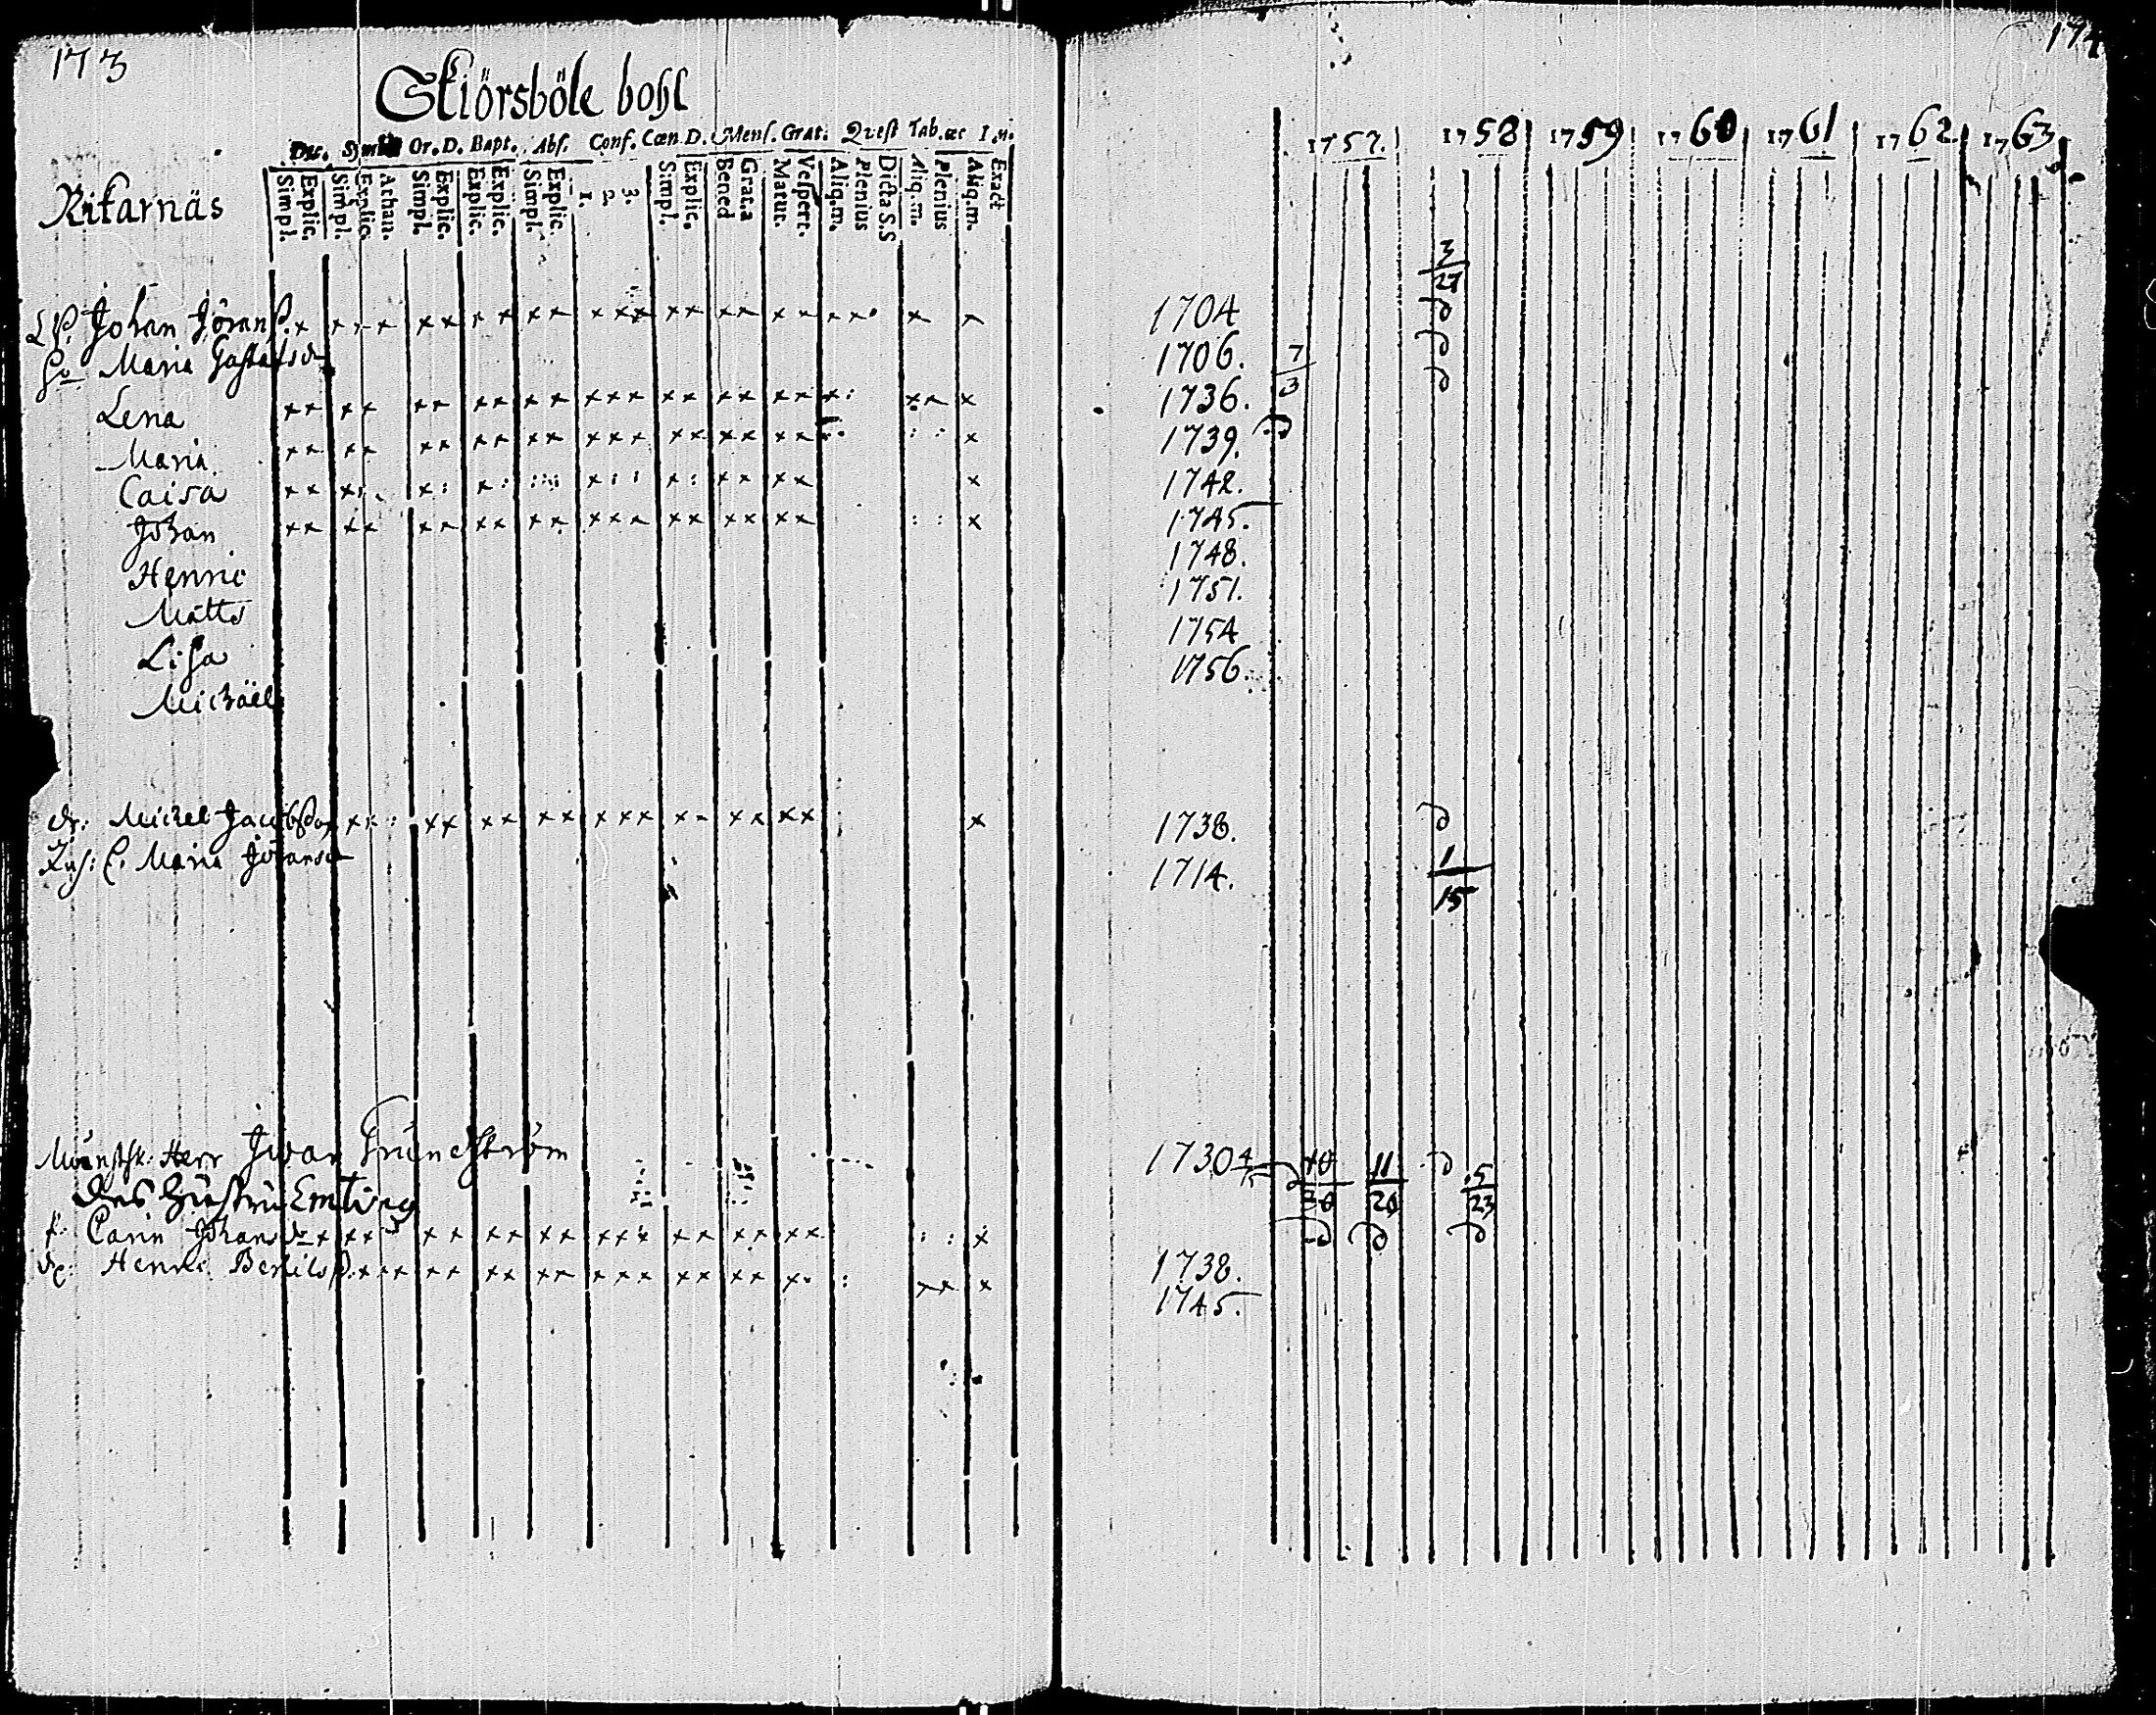 173
Skiörsböle bohl
Or. D. Bapt. Abs. Conf. Cœn D. Mens. Grat. Quest Tab. æc
Simpl. Explic. Simpl. Explic. Athan. Simpl. Explic. Explic. Explic. Simpl. Explic. 1. 2. 3. Simpl. Explic. Bened Grat.a Matut. Vespert. Aliq.m. Plenius Dicta S.S Aliq.m. Plenius Aliq.m. Exact
Rikarnäs
Johan Jöranss.
Maria Gustafsdr
Lena
Maria
Caisa
Johan
Henric
Matts
Lisa
Michäel
dr: Michel Jacobsson
Maria Johansdr
Munstsk. Herr Iwar Grundström
des Hustru
p. Carin Johansdr
dr: Henric Bertilss.
174
1757. 1758 1759 1760 1761 1762. 1763
3/21
1704
1706. 7/3
1736.
1739.
1742.
1745.
1748.
1751.
1754
1756.
1738.
1714. 1/15
1730 4 10/30 11/20 5/23
1738.
1745.